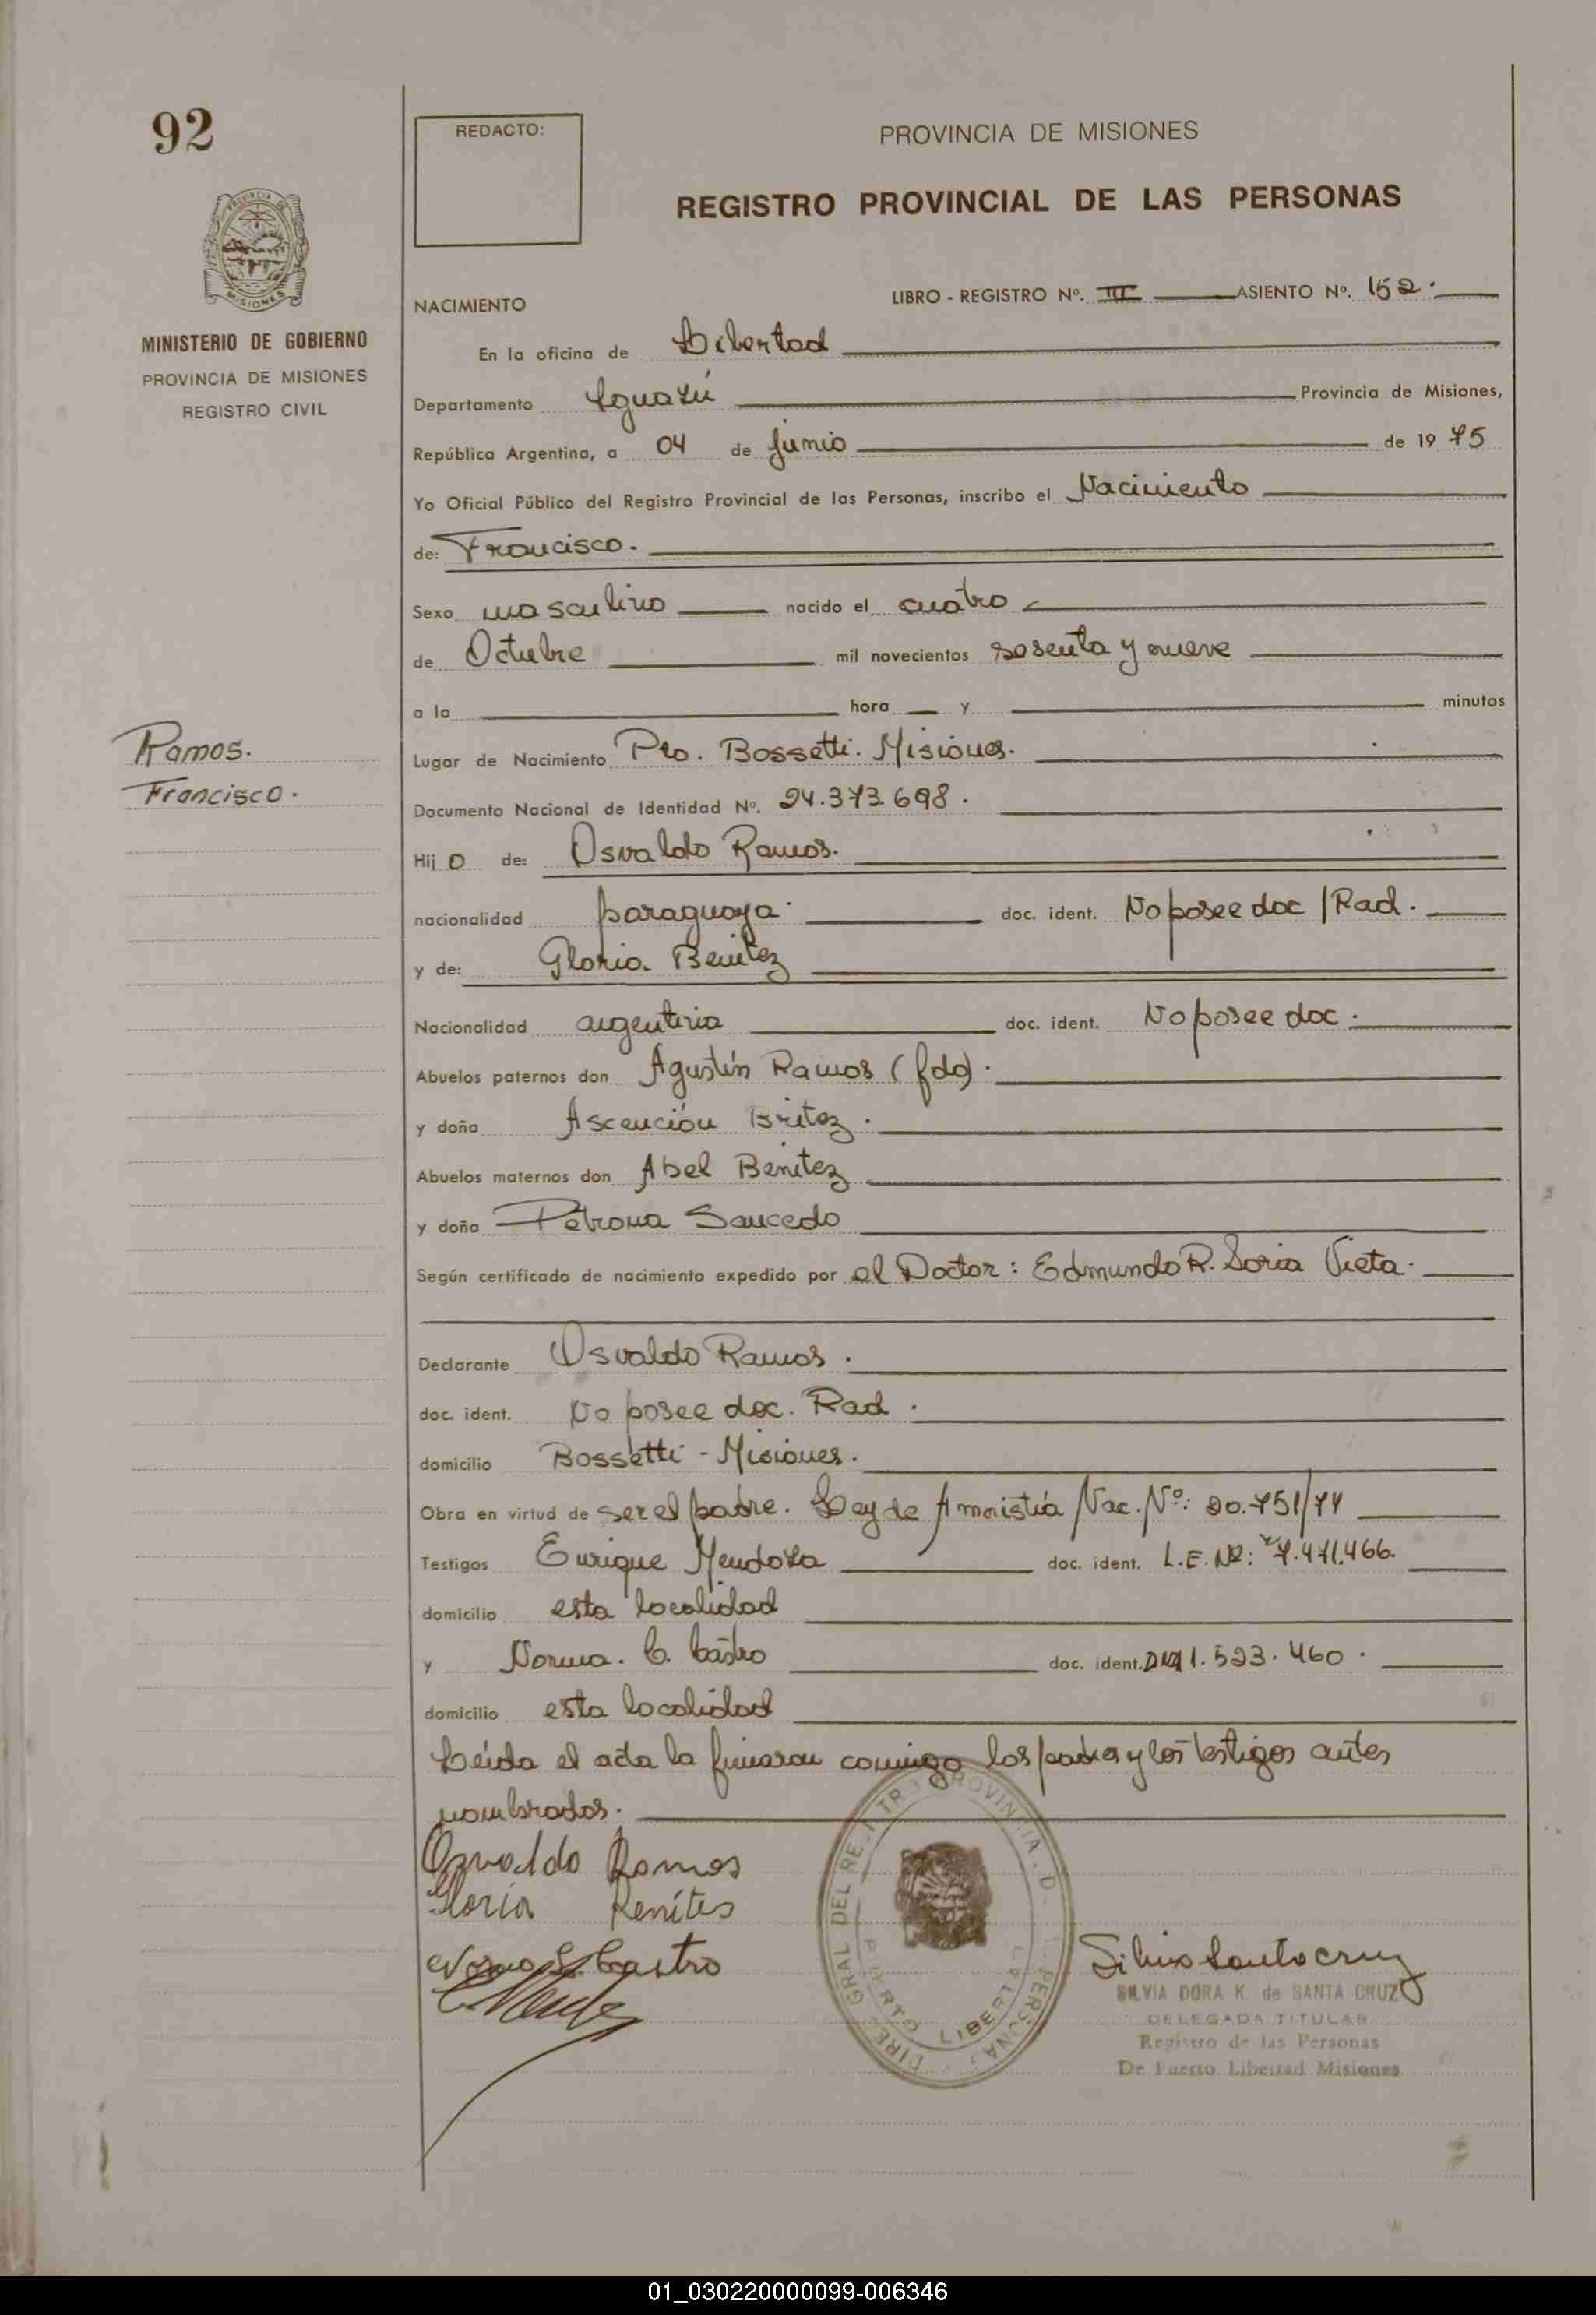 92
REDACTO:
PROVINCIA DE MISIONES
REGISTRO PROVINCIAL DE LAS PERSONAS
MINISTERIO DE GOBIERNO
PROVINCIA DE MISIONES
REGISTRO CIVIL
NACIMIENTO
LIBRO - REGISTRO Nº. III ASIENTO Nº. 152.
En la oficina de Libertad
Departamento Iguazú Provincia de Misiones,
República Argentina, a 04 de Junio de 1975
Yo Oficial Público del Registro Provincial de las Personas, inscribo el Nacimiento
de: Francisco.
Sexo masculino nacido el cuatro
de Octubre mil novecientos sesenta y nueve
a la hora y minutos
Ramos.
Francisco.
Lugar de Nacimiento Pto. Bossetti. Misiones.
Documento Nacional de Identidad Nº. 24.373.698.
Hijo de: Osvaldo Ramos.
nacionalidad paraguaya doc. ident. No posee doc/Rad.
y de: Gloria Benitez
Nacionalidad argentina doc. ident. No posee doc.
Abuelos paternos don Agustín Ramos (fdo).
y doña Ascención Britez.
Abuelos maternos don Abel Benitez
y doña Petrona Saucedo
Según certificado de nacimiento expedido por el Doctor: Edmundo R. Soria Vieta.
Declarante Osvaldo Ramos.
doc. ident. No posee doc. Rad.
domicilio Bossetti - Misiones.
Obra en virtud de ser el padre. Ley de Amnistía Nac. Nº: 20.751/74
Testigos Enrique Mendoza doc. ident. L.E. Nº: 7.471.466.
domicilio esta localidad
y Norma. C. Castro doc. ident. DNI 1.523.460.
domicilio esta localidad
Leída el acta la firmaron conmigo los padres y los testigos antes
nombrados.
Osvaldo Ramos
Gloria Benítes
Norma C. Castro
Silvia Santa cruz
SILVIA DORA K. de SANTA CRUZ
DELEGADA TITULAR
Registro de las Personas
De Puerto Libertad Misiones
PUERTO LIBERTAD
01_030220000099-006346